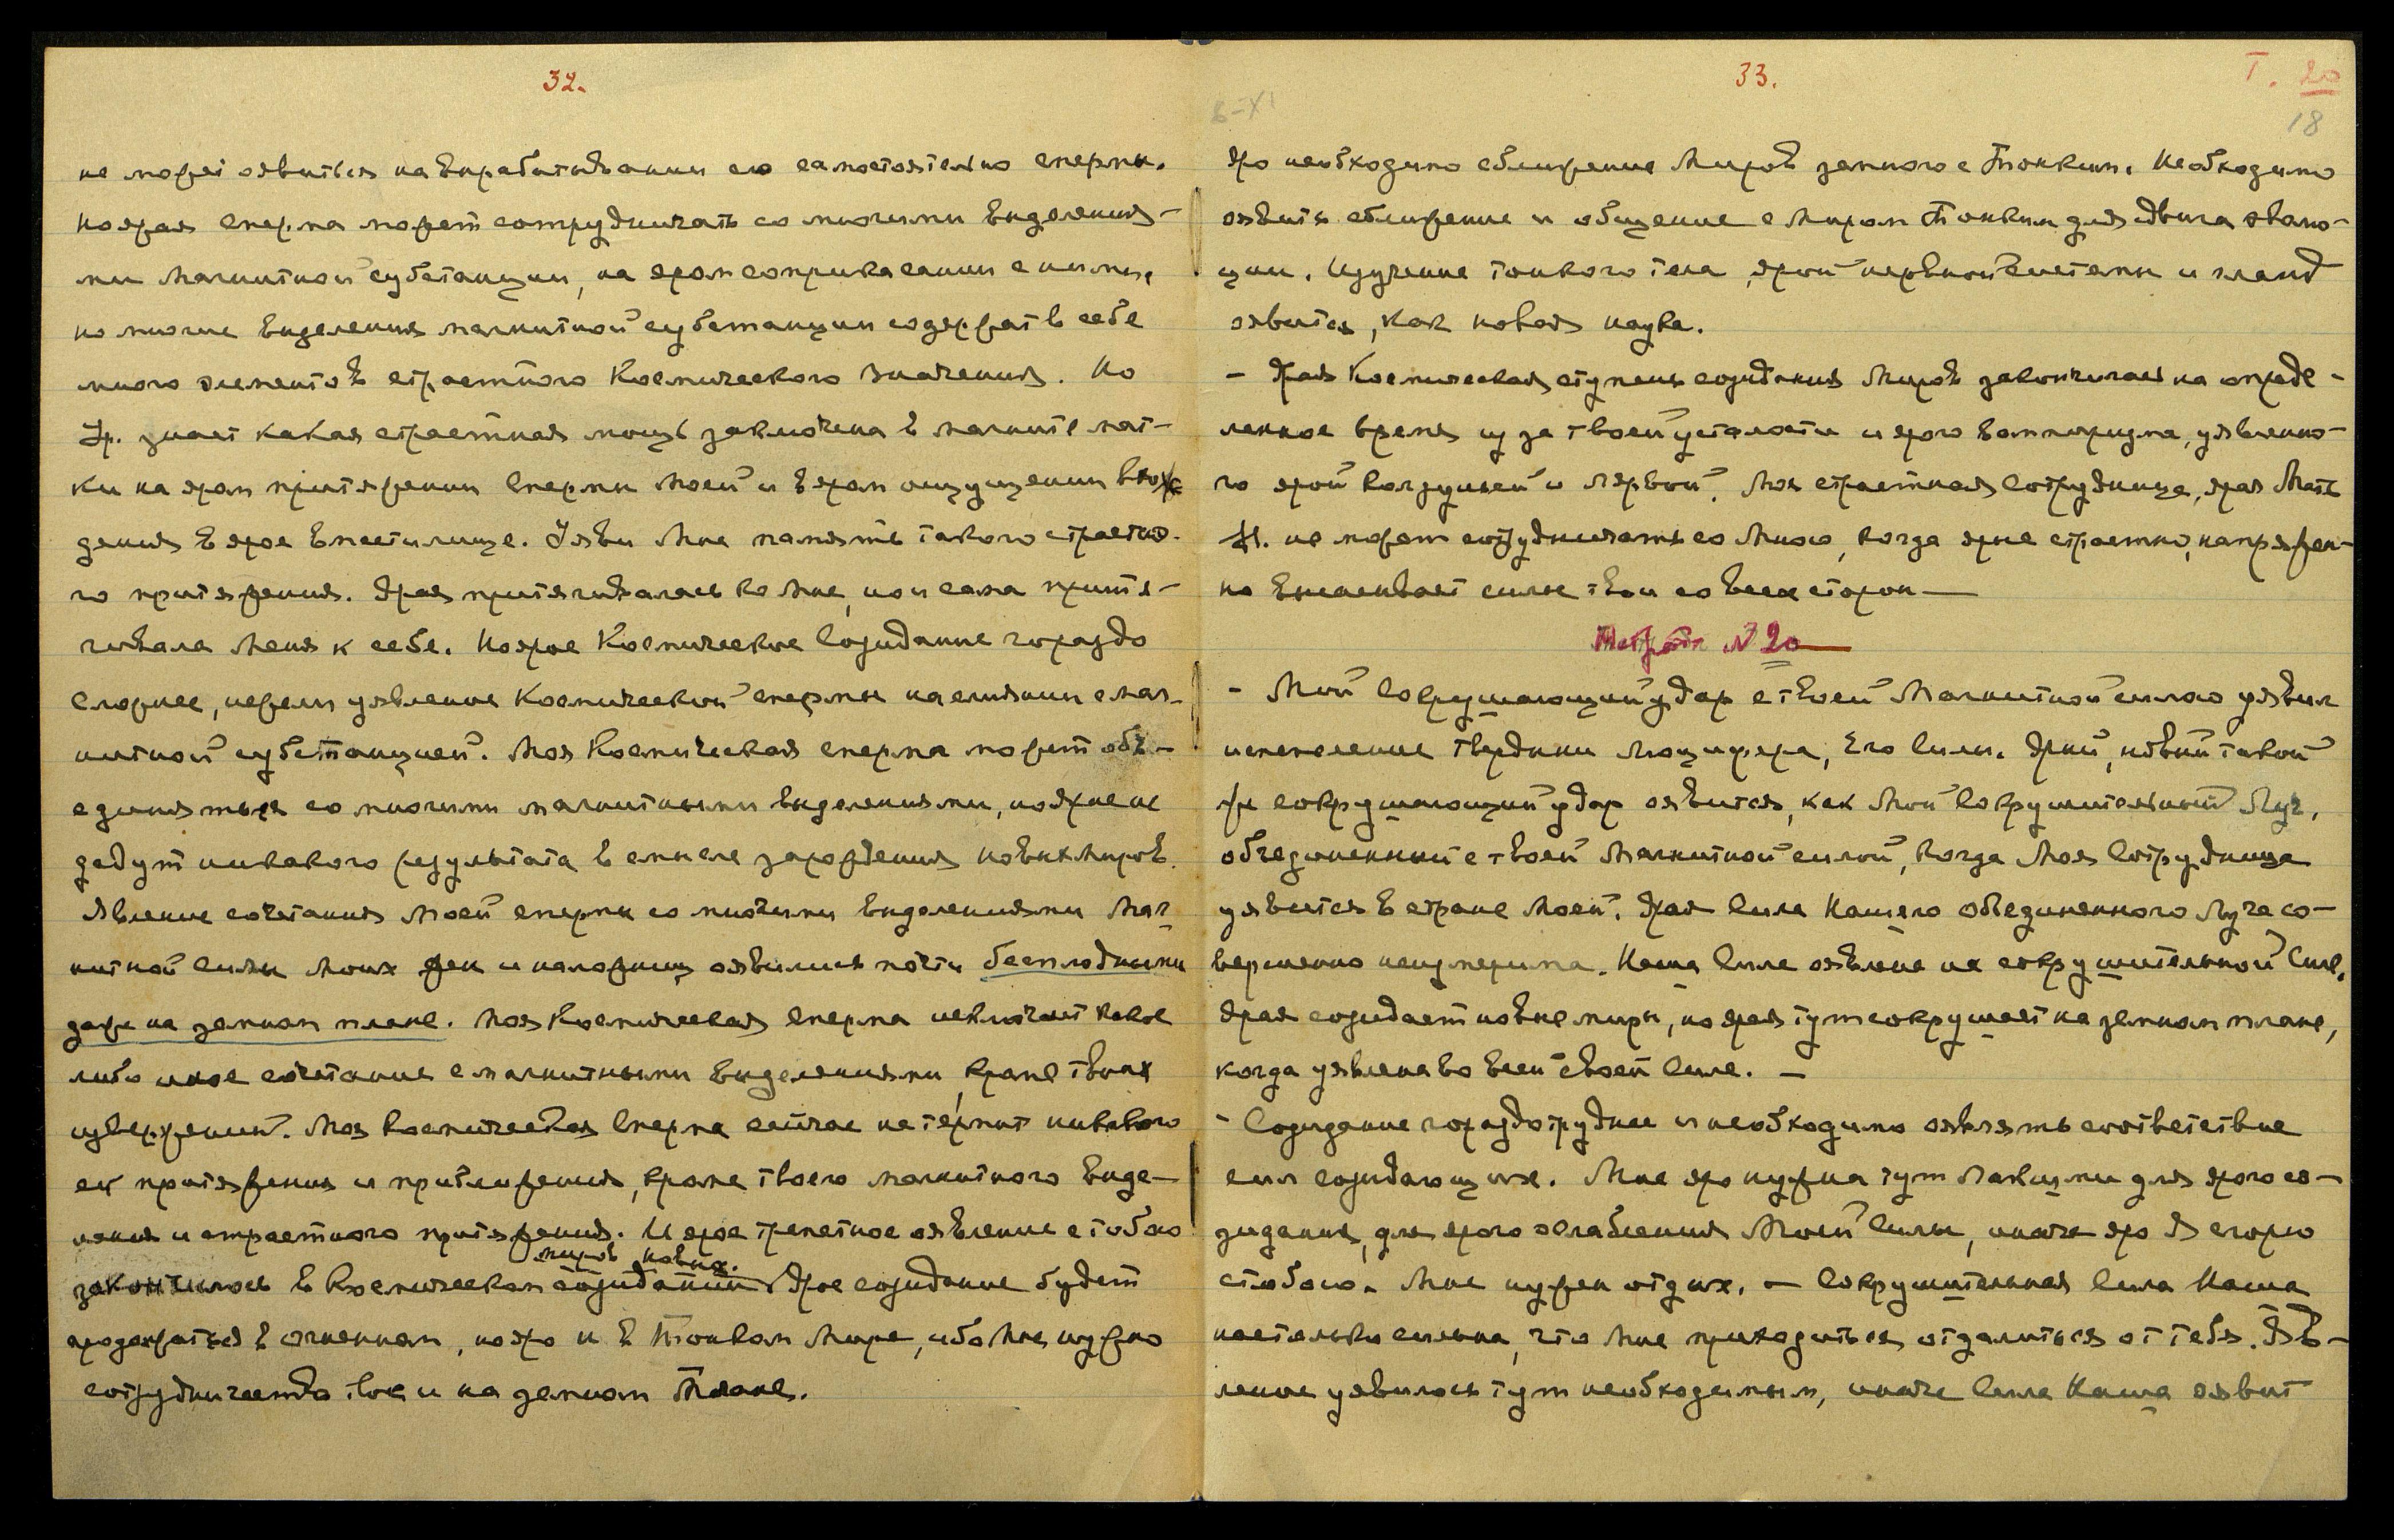 32.
не может явиться на вырабатывании ею самостоятельно спермы.
Но ярая сперма может сотрудничать со многими выделения-
ми магнитной субстанции, на яром соприкасании с ними,
но многие выделения магнитной субстанции содержат в себе
много элементов страстного Космического значения. Но
Ур. знает какая страстная мощь заключена в магните мат-
ки на яром притяжении спермы Моей и в яром ощущении вхож
дения в ярое вместилище. Уяви Мне память такого страстно-
го притяжения. Ярая притягивалась ко Мне, но и сама притя-
гивала Меня к себе. Но ярое Космическое Созидание гораздо
сложнее, нежели уявление Космической спермы на слиянии с маг-
нитной субстанцией. Моя Космическая сперма может объ-
единяться со многими магнитными выделениями, но ярые не
дадут никакого результата в смысле зарождения новых Миров.
Явление сочетания Моей спермы со многими выделениями Маг-
нитной силы Моих жен и наложниц оявились почти бесплодными
даже на земном плане. Моя Космическая сперма исключает какое
либо иное сочетание с магнитными выделениями, кроме твоих
извержений. Моя Космическая Сперма сейчас не терпит никакого
ея притяжения и приближения, кроме твоего магнитного выде-
ления и страстного притяжения. И ярое трепетное оявление с тобою
миров новых.
закончилось в Космическом созидании Ярое созидание будет
продолжаться в огненном, но яро и в Тонком Мире, ибо Мне нужно
сотрудничество твое и на земном Плане.
33.
Т. 20
18
8-XI
Яро необходимо сближение Миров земного с Тонким. Необходимо
оявить сближение и общение с Миром Тонким для сдвига эволю-
ции. Изучение тонкого тела, ярой нервной системы и гланд
оявится, как новая наука.
— Ярая Космическая ступень созидания Миров закончилась на опреде-
ленное время из за твоей усталости и ярого вампиризма, уявленно-
го ярой колдуньей и лярвой. Моя страстная Сотрудница, ярая Мать
не может сотрудничать со Мною, когда ярые страстно, напряжен-
но высасывает силы твои со всех сторон —
Тетрадь № 20
- Мой Сокрушающий удар с твоей Магнитной силою уявил
испепеление твердыни Люцифера, Его Силы. Ярый, новый такой
же сокрушающий удар оявится, как Мой Сокрушительный Луч,
объединенный с твоей Магнитной силой, когда Моя Сотрудница
уявится в стране Моей. Ярая Сила Нашего объединенного Луча со-
вершенно неизмерима. Наша Сила оявлена на сокрушительной Силе.
Ярая созидает новые миры, но ярая тут сокрушает на земном плане,
когда уявлена во всей своей Силе. —
- Созидание гораздо труднее и необходимо оявлять соответствие
сил созидающих. Мне яро нужна тут Лакшми для ярого со-
зидания, для ярого ослабления Моей Силы, иначе яро Я сгорю
с тобою. Мне нужен отдых. — Сокрушительная Сила Наша
настолько сильна, что Мне приходиться отдалиться от тебя. Яв-
ление уявилось тут необходимым, иначе Сила Наша оявит